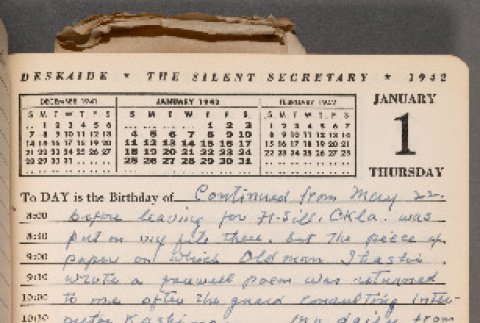 DESKAIDE ★ THE SILENT SECRETARY ★ 1942
DECEMBER 1941 JANUARY 1942 FEBRUARY 1942
S M T W T F S S M T W T F S S M T W T F S
.. 1 2 3 4 5 6 .. .. .. .. 1 2 3 1 2 3 4 5 6 7
7 8 9 10 11 12 13 4 5 6 7 8 9 10 8 9 10 11 12 13 14
14 15 16 17 18 19 20 11 12 13 14 15 16 17 15 16 17 18 19 20 21
21 22 23 24 25 26 27 18 19 20 21 22 23 24 22 23 24 25 26 27 28
28 29 30 31 .. .. .. 25 26 27 28 29 30 31
JANUARY
1
THURSDAY
To DAY is the Birthday of Continued from May 22.
8:00 before leaving for Ft. Sill, Okla. was
8:30 put on my file there. but the piece of
9:00 paper on which Old man Ihashi
9:30 wrote a farewell poem was returned
10:00 to me after the guard consulting Inter-
10:30 preter Kashima. from